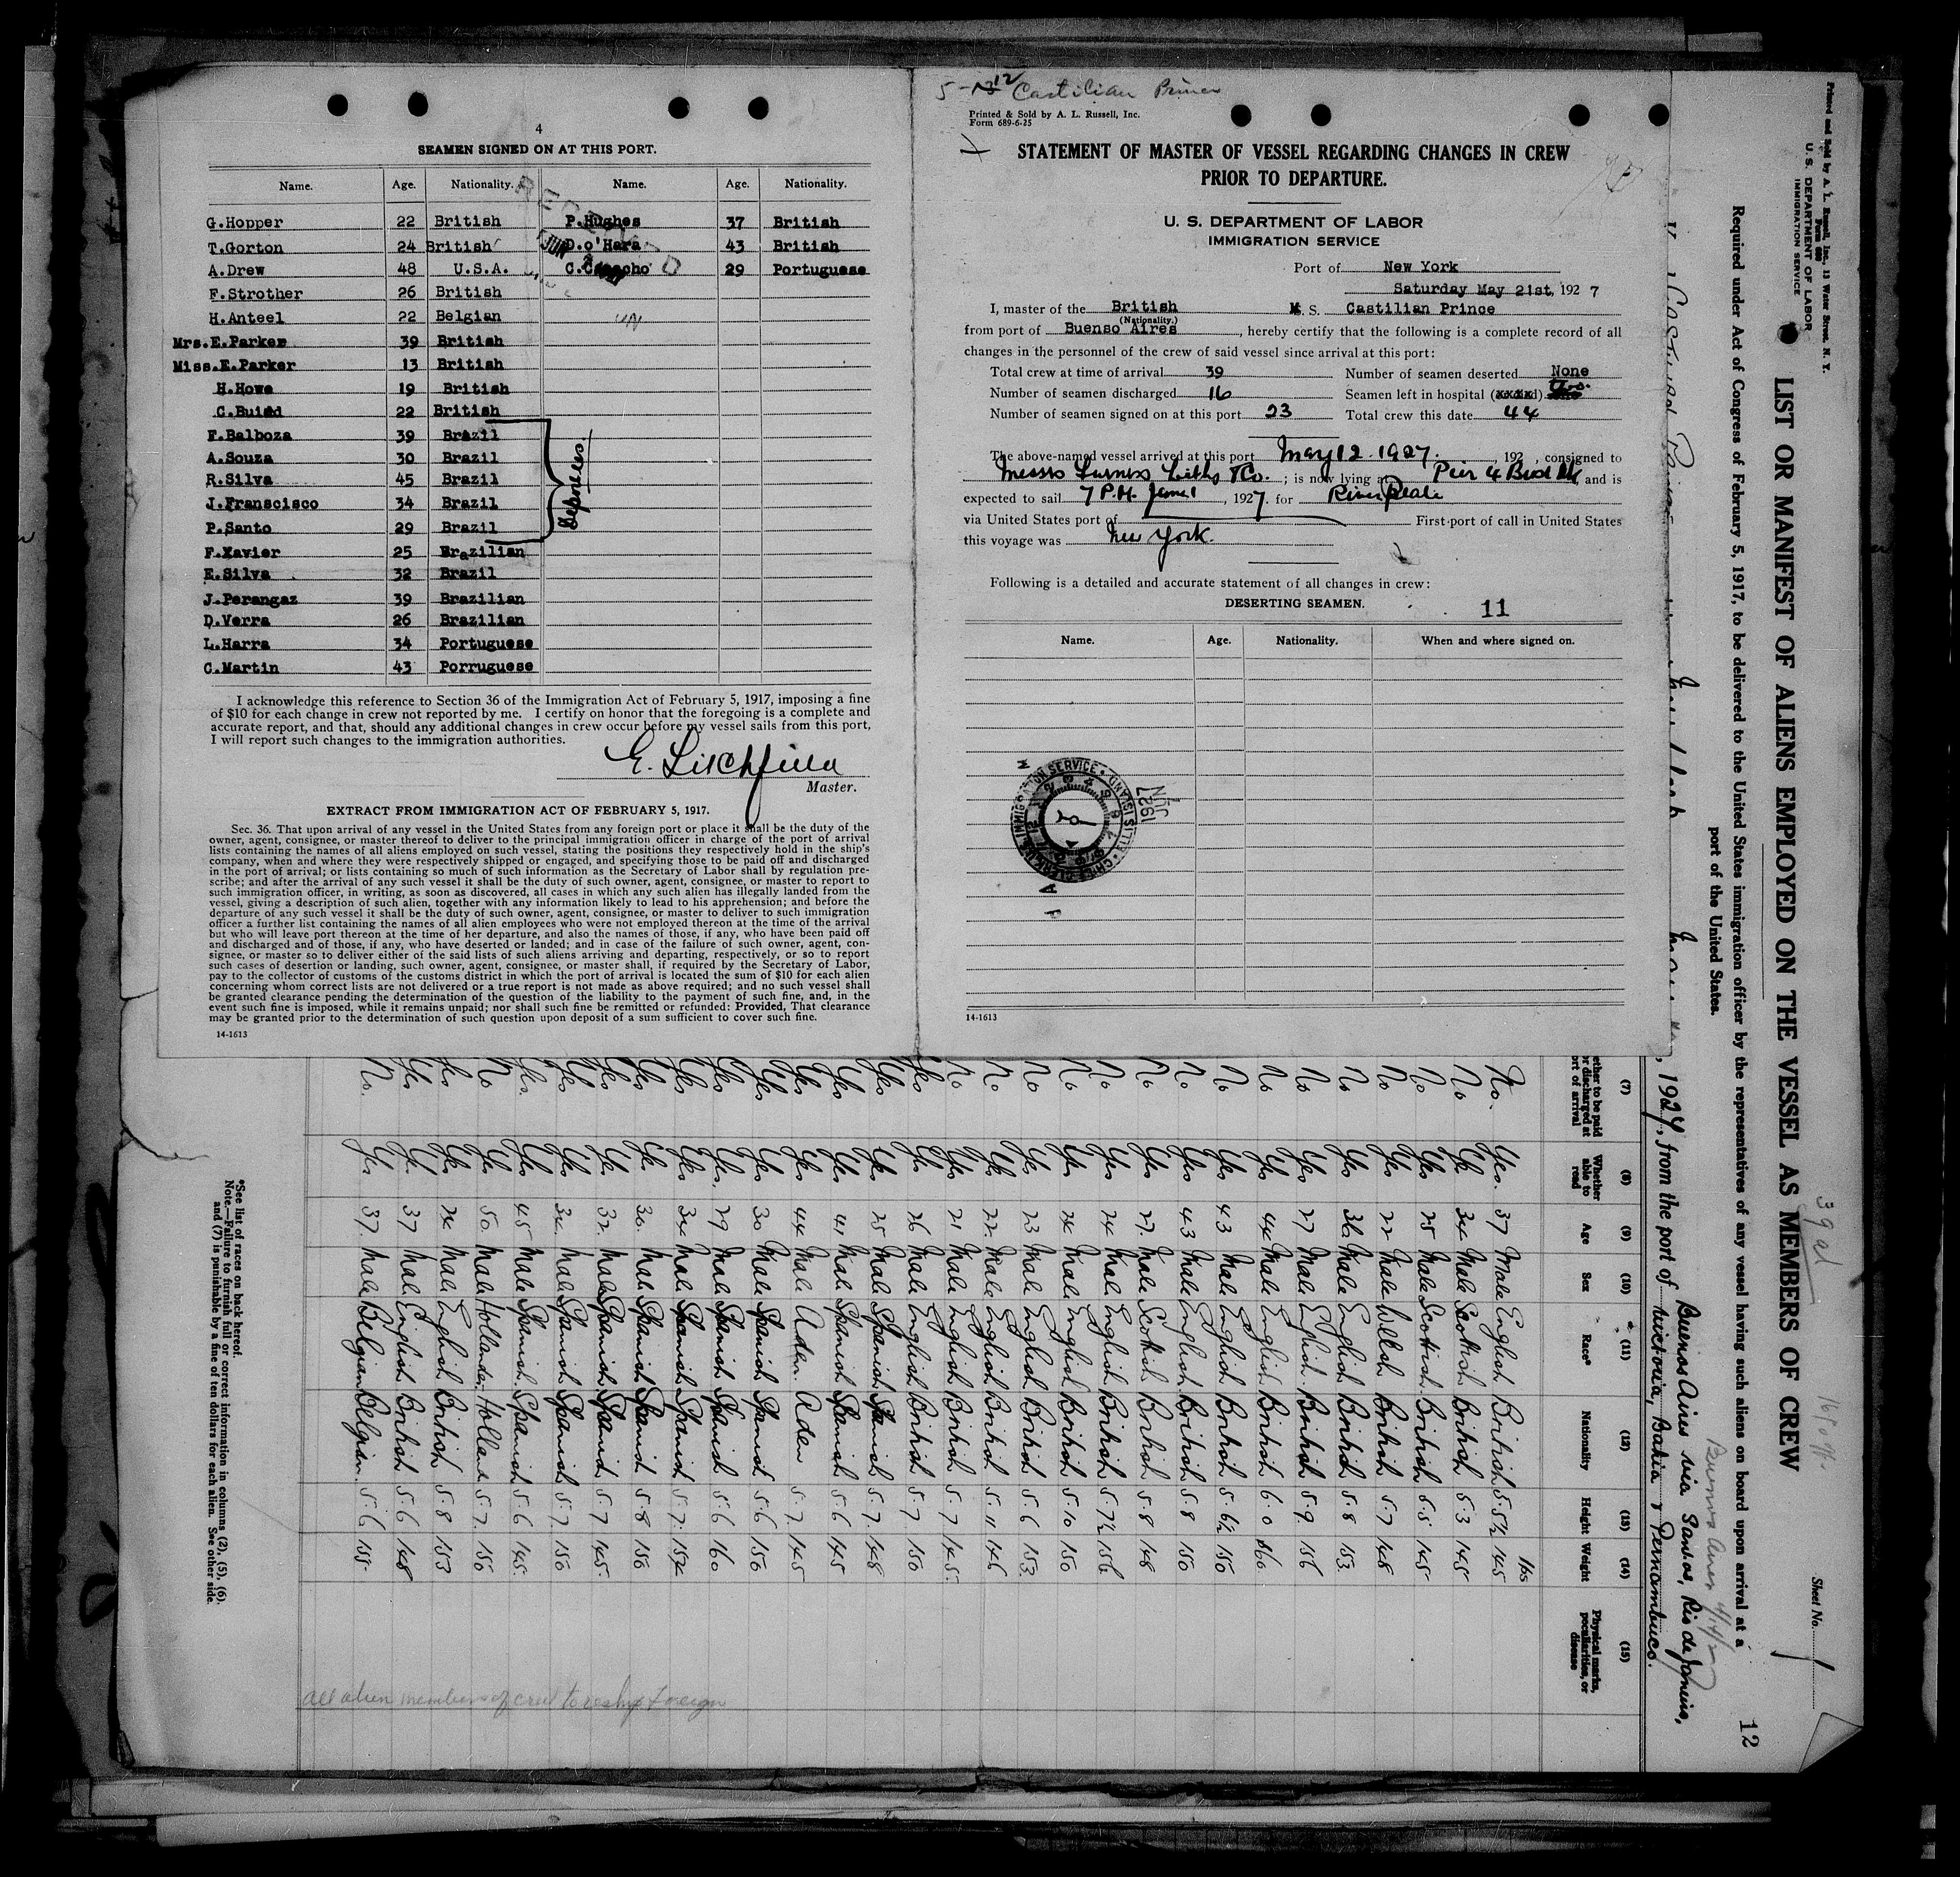 4
SEAMEN SIGNED ON AT THIS PORT.
Name. Age. Nationality. Name. Age. Nationality.
G.Hopper 22 British P.Hughes 37 British
T.Gorton 24 British D.o'Hara 43 British
A.Drew 48 U.S.A. 29 Portuguese
F.Strother 26 British
H.Anteel 22 Belgian
Mrs.E.Parker 39 British
Miss.E.Parker 13 British
H.Howe 19 British
22 British
F.Balboza 39 Brazil
A.Souza 30 Brazil
R.Silva 45 Brazil
J.Franscisco 34 Brazil
P.Santo 29 Brazil
F.Xavier 25 Brazilian
E.Silva 32 Brazil
J.Perangaz 39 Brazilian
D.Verra 26 Brazilian
L.Harra 34 Portuguese
C.Martin 43 Porruguese
RECEIVED
JUN
I acknowledge this reference to Section 36 of the Immigration Act of February 5, 1917, imposing a fine
of $10 for each change in crew not reported by me. I certify on honor that the foregoing is a complete and
accurate report, and that, should any additional changes in crew occur before my vessel sails from this port,
I will report such changes to the immigration authorities.
E. Litchfield
Master.
EXTRACT FROM IMMIGRATION ACT OF FEBRUARY 5, 1917.
Sec. 36. That upon arrival of any vessel in the United States from any foreign port or place it shall be the duty of the
owner, agent, consignee, or master thereof to deliver to the principal immigration officer in charge of the port of arrival
lists containing the names of all aliens employed on such vessel, stating the positions they respectively hold in the ship's
company, when and where they were respectively shipped or engaged, and specifying those to be paid off and discharged
in the port of arrival; or lists containing so much of such information as the Secretary of Labor shall by regulation pre-
scribe; and after the arrival of any such vessel it shall be the duty of such owner, agent, consignee, or master to report to
such immigration officer, in writing, as soon as discovered, all cases in which any such alien has illegally landed from the
vessel, giving a description of such alien, together with any information likely to lead to his apprehension; and before the
departure of any such vessel it shall be the duty of such owner, agent, consignee, or master to deliver to such immigration
officer a further list containing the names of all alien employees who were not employed thereon at the time of the arrival
but who will leave port thereon at the time of her departure, and also the names of those, if any, who have been paid off
and discharged and of those, if any, who have deserted or landed; and in case of the failure of such owner, agent, con-
signee, or master so to deliver either of the said lists of such aliens arriving and departing, respectively, or so to report
such cases of desertion or landing, such owner, agent, consignee, or master shall, if required by the Secretary of Labor,
pay to the collector of customs of the customs district in which the port of arrival is located the sum of $10 for each alien
concerning whom correct lists are not delivered or a true report is not made as above required; and no such vessel shall
be granted clearance pending the determination of the question of the liability to the payment of such fine, and, in the
event such fine is imposed, while it remains unpaid; nor shall such fine be remitted or refunded: Provided, That clearance
may be granted prior to the determination of such question upon deposit of a sum sufficient to cover such fine.
14-1613
Castilian Prince
Printed & Sold by A. L. Russell, Inc.
Form 689-6-25
STATEMENT OF MASTER OF VESSEL REGARDING CHANGES IN CREW
PRIOR TO DEPARTURE.
U. S. DEPARTMENT OF LABOR
IMMIGRATION SERVICE
Port of New York
Saturday May 21st, 1927
I, master of the British M. S. Castilian Prince
(Nationality.)
from port of Buenso Aires, hereby certify that the following is a complete record of all
changes in the personnel of the crew of said vessel since arrival at this port:
Total crew at time of arrival 39 Number of seamen deserted None
Number of seamen discharged 16 Seamen left in hospital (xxxxx)
Number of seamen signed on at this port 23 Total crew this date 44
The above-named vessel arrived at this port May 12 1927. , 192 , consigned to
Messrs Furness Withy & Co. ; is now lying at Pier 4 and is
expected to sail 7 P.M. June 1, 1927 for River Plate
via United States port of First port of call in United States
this voyage was New York.
Following is a detailed and accurate statement of all changes in crew:
DESERTING SEAMEN. 11
Name. Age. Nationality. When and where signed on.
IMMIGRATION SERVICE
1927 JUN
14-1613
Printed and Sold by A. L. Russell, Inc., 13 Water Street, N. Y.
Form 689
U. S. DEPARTMENT OF LABOR
IMMIGRATION SERVICE
Sheet No. 1
12
LIST OR MANIFEST OF ALIENS EMPLOYED ON THE VESSEL AS MEMBERS OF CREW
Required under Act of Congress of February 5, 1917, to be delivered to the United States immigration officer by the representatives of any vessel having such aliens on board upon arrival at a
port of the United States.
, 1927, from the port of Buenos Aires via Santos, Rio de Janeiro,
Victoria, Bahia & Pernambuco.
(7) (8) (9) (10) (11) (12) (13) (14) (15)
Whether able to read Age Sex Race* Nationality Height Weight Physical marks, peculiarities, or disease
No. Yes. 37 Male English British 5.5½ 145
No Yes 34 Male Scottish British 5.3 145
No Yes 25 Male Scottish British 5.5 145
No Yes 22 Male Welsh British 5.7 148
No Yes 36 Male English British 5.8 153
No Yes 27 Male English British 5.9 156
No Yes 44 Male English British 6.0
No Yes 43 Male English British 5.6½ 150
No Yes 43 Male English British 5.8 150
No Yes 27 Male Scottish British 5.8 148
No Yes 24 Male English British 5.7½ 156
No Yes 24 Male English British 5.10 150
No Yes 23 Male English British 5.6 153
No Yes 22 Male English British 5.11 146
No Yes 21 Male English British 5.7 145
Yes Yes 26 Male English British 5.7 150
Yes Yes 25 Male Spanish Spanish 5.7 148
Yes Yes 41 Male Spanish Spanish 5.6 145
Yes Yes 44 Male Aden Aden 5.7 145
Yes Yes 30 Male Spanish Spanish 5.6 150
Yes Yes 29 Male Spanish Spanish 5.6 160
Yes Yes 34 Male Spanish Spanish 5.7 154
Yes Yes 30 Male Spanish Spanish 5.8 150
Yes Yes 32 Male Spanish Spanish 5.7 145
Yes Yes 34 Male Spanish Spanish 5.7 150
Yes Yes 45 Male Spanish Spanish 5.6 145
No Yes 50 Male Hollander Holland 5.7 150
Yes Yes 24 Male English British 5.8 153
Yes Yes 37 Male English British 5.6 148
No. Yes 37 Male Belgian Belgian 5.6 155
*See list of races on back hereof.
Note.—Failure to furnish full or correct information in columns (2), (5), (6),
and (7) is punishable by a fine of ten dollars for each alien. See other side.
all alien members of crew to reship foreign